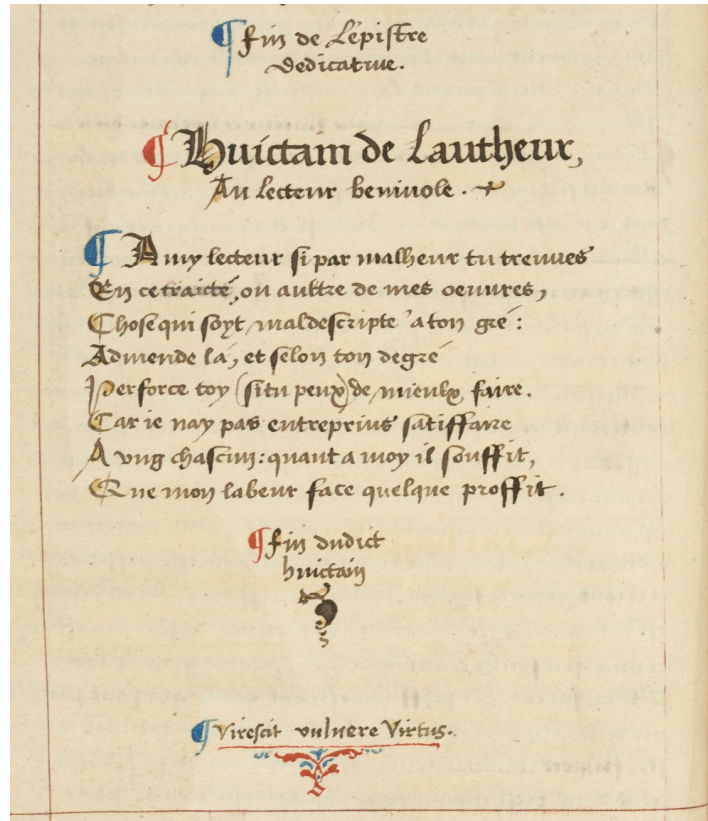 ¶ Fin de Lepistre
Dedicative.
¶ Huictam de Lautheur,
Au Lecteur benivole.
¶ Amy lecteur si par malheur tu treuves
En ce traicté, ou aultre de mes oeuvres,
Chose qui soyt maldescripte a ton gré:
Admende la, et selon ton degré
Perforce toy (si tu peux) de mieulx faire.
Car ie nay pas entreprins satiffaire
A vng chascun: quant a moy il souffit,
Que mon labeur face quelque proffit.
¶ Fin dudict
huictain
¶ Virescit vulnere Virtus.